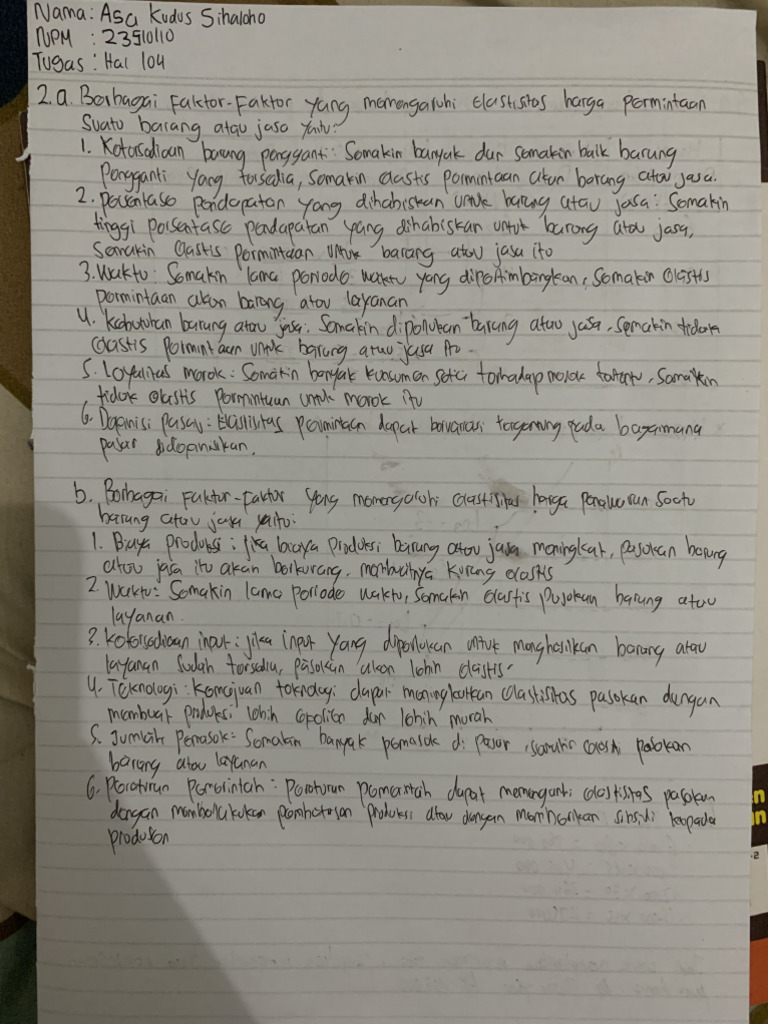 Nama: Asa Kudus Sihaloho
NPM : 23510110
Tugas : Hal 104
2.a. Berbagai Faktor-Faktor yang memengaruhi elastisitas harga permintaan
suatu barang atau jasa yaitu:
1. Ketersediaan barang pengganti: Semakin banyak dan semakin baik barang
Pengganti yang tersedia, semakin elastis permintaan akan barang atau jasa.
2. persentase pendapatan yang dihabiskan untuk barang atau jasa: Semakin
tinggi persentase pendapatan yang dihabiskan untuk barang atau jasa,
semakin elastis permintaan untuk barang atau jasa itu
3. Waktu: Semakin lama periode waktu yang dipertimbangkan, semakin elastis
permintaan akan barang atau layanan
4. Kebutuhan barang atau jasa: Semakin diperlukan barang atau jasa, semakin tidak
elastis permintaan untuk barang atau jasa itu.
5. Loyalitas merek: Semakin banyak konsumen setia terhadap merek tertentu, semakin
tidak elastis permintaan untuk merek itu
6. Definisi pasar: Elastisitas permintaan dapat bervariasi tergantung pada bagaimana
pasar didefinisikan.
b. Berbagai Faktor-faktor yang memengaruhi elastisitas harga penawaran suatu
barang atau jasa yaitu:
1. Biaya produksi: jika biaya produksi barang atau jasa meningkat, pasokan barang
atau jasa itu akan berkurang, membuatnya kurang elastis
2. Waktu: Semakin lama periode waktu, semakin elastis pasokan barang atau
layanan.
3. Ketersediaan input: jika input yang diperlukan untuk menghasilkan barang atau
layanan sudah tersedia, pasokan akan lebih elastis.
4. Teknologi: Kemajuan teknologi dapat meningkatkan elastisitas pasokan dengan
membuat produksi lebih efisien dan lebih murah
5. Jumlah Pemasok: Semakin banyak pemasok di pasar, semakin elastis pasokan
barang atau layanan
6. Peraturan pemerintah: peraturan pemerintah dapat memenganti elastisitas pasokan
dengan memberlakukan pembatasan produksi atau dengan memberikan subsidi kepada
produsen